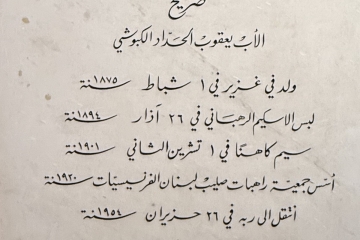 ضريح
الأب يعقوب الحدّاد الكبوشي
ولد في غزير في ١ شباط سنة ١٨٧٥
لبس الاسكيم الرهباني في ٢٦ آذار سنة ١٨٩٤
سيم كاهنًا في ١ تشرين الثاني سنة ١٩٠١
أسّس جمعيّة راهبات صليب لبنان الفرنسيسيّات سنة ١٩٣٠
أنتقل الى ربه في ٢٦ حزيران سنة ١٩٥٤